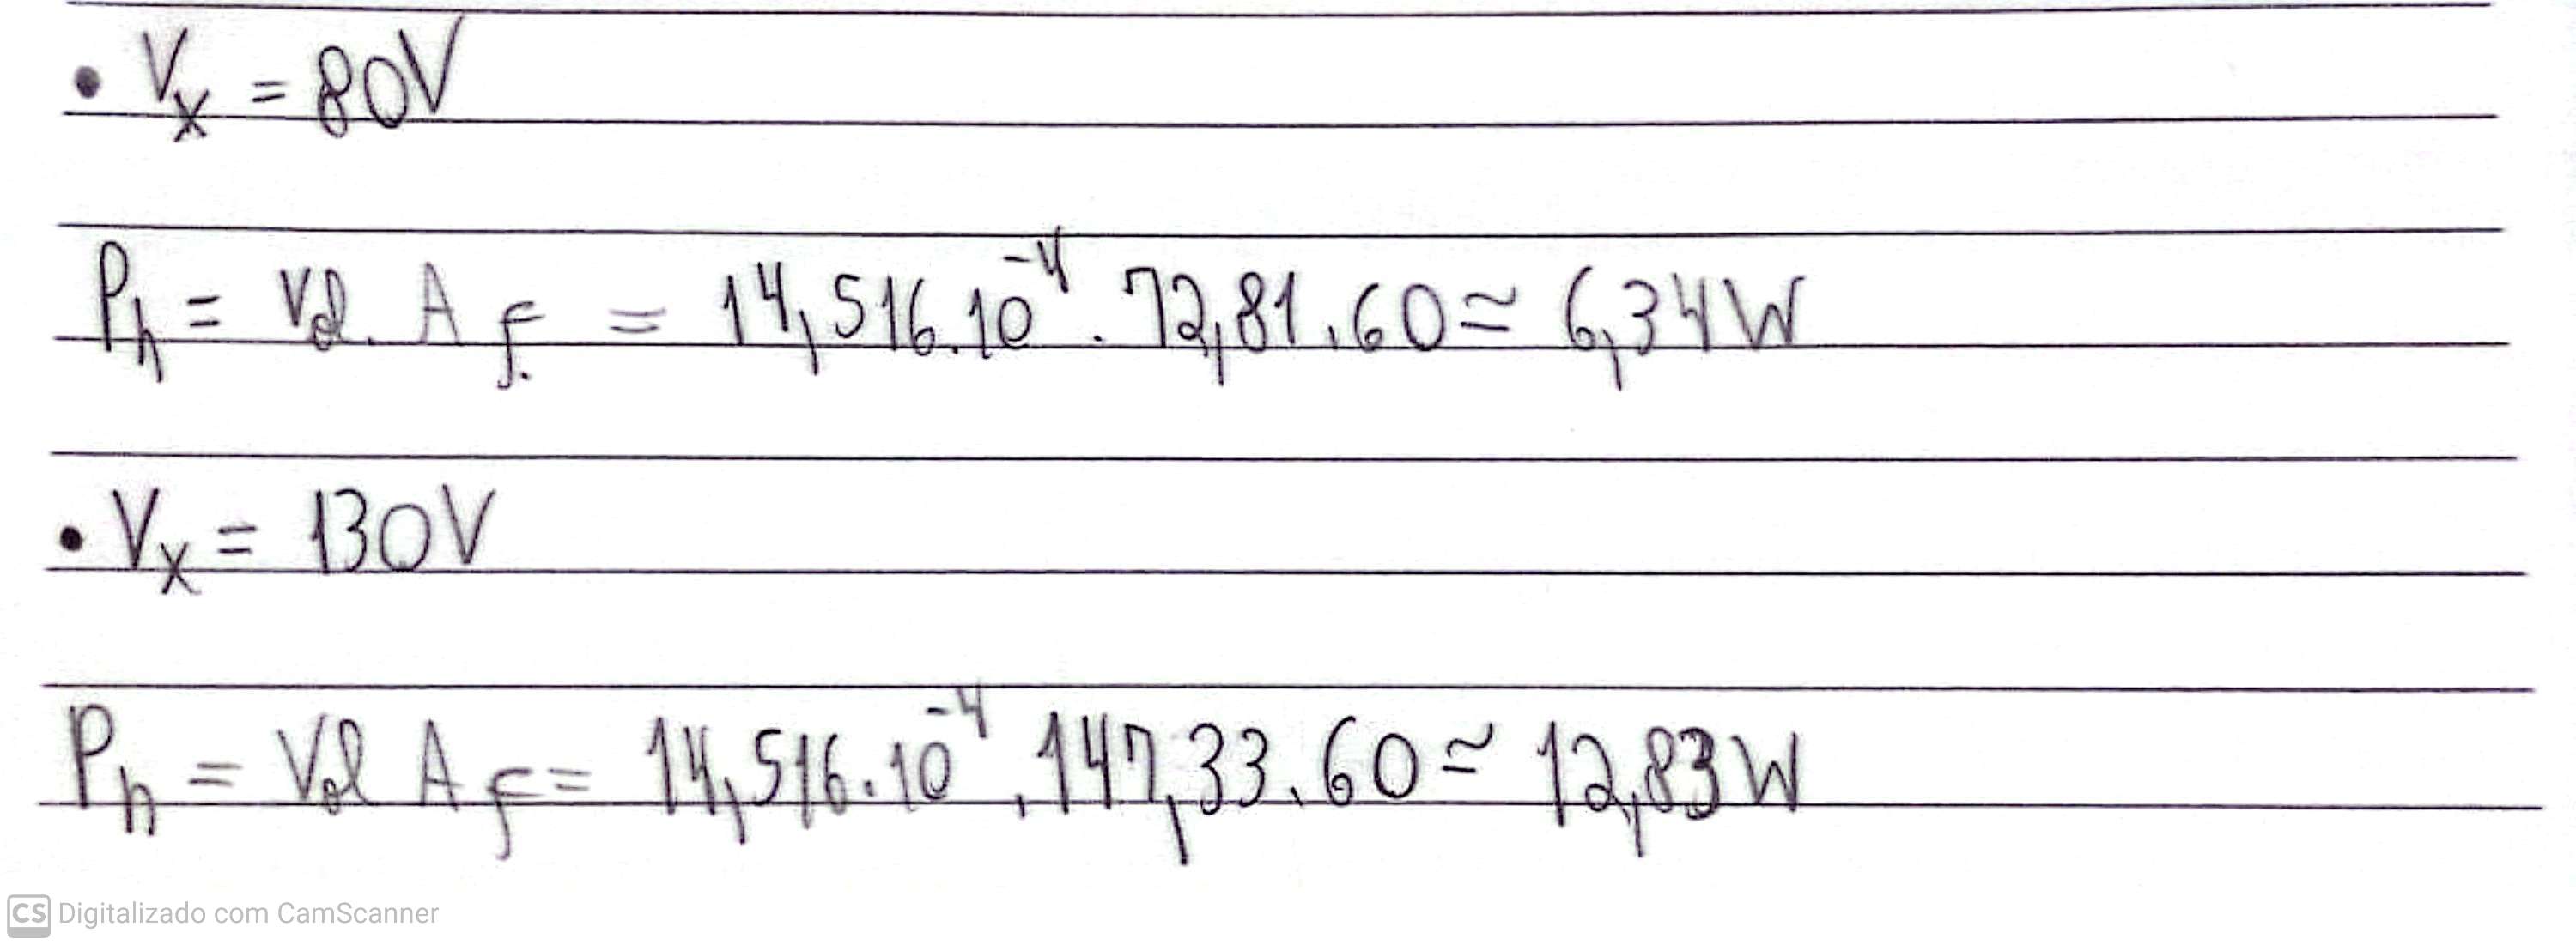 • Vx = 80V
Ph = Vol. A f. = 14,516.10^-4 . 72,81 . 60 ≃ 6,34W
• Vx = 130V
Ph = Vol A f = 14,516.10^-4 . 147,33 . 60 ≃ 12,83W
CS Digitalizado com CamScanner